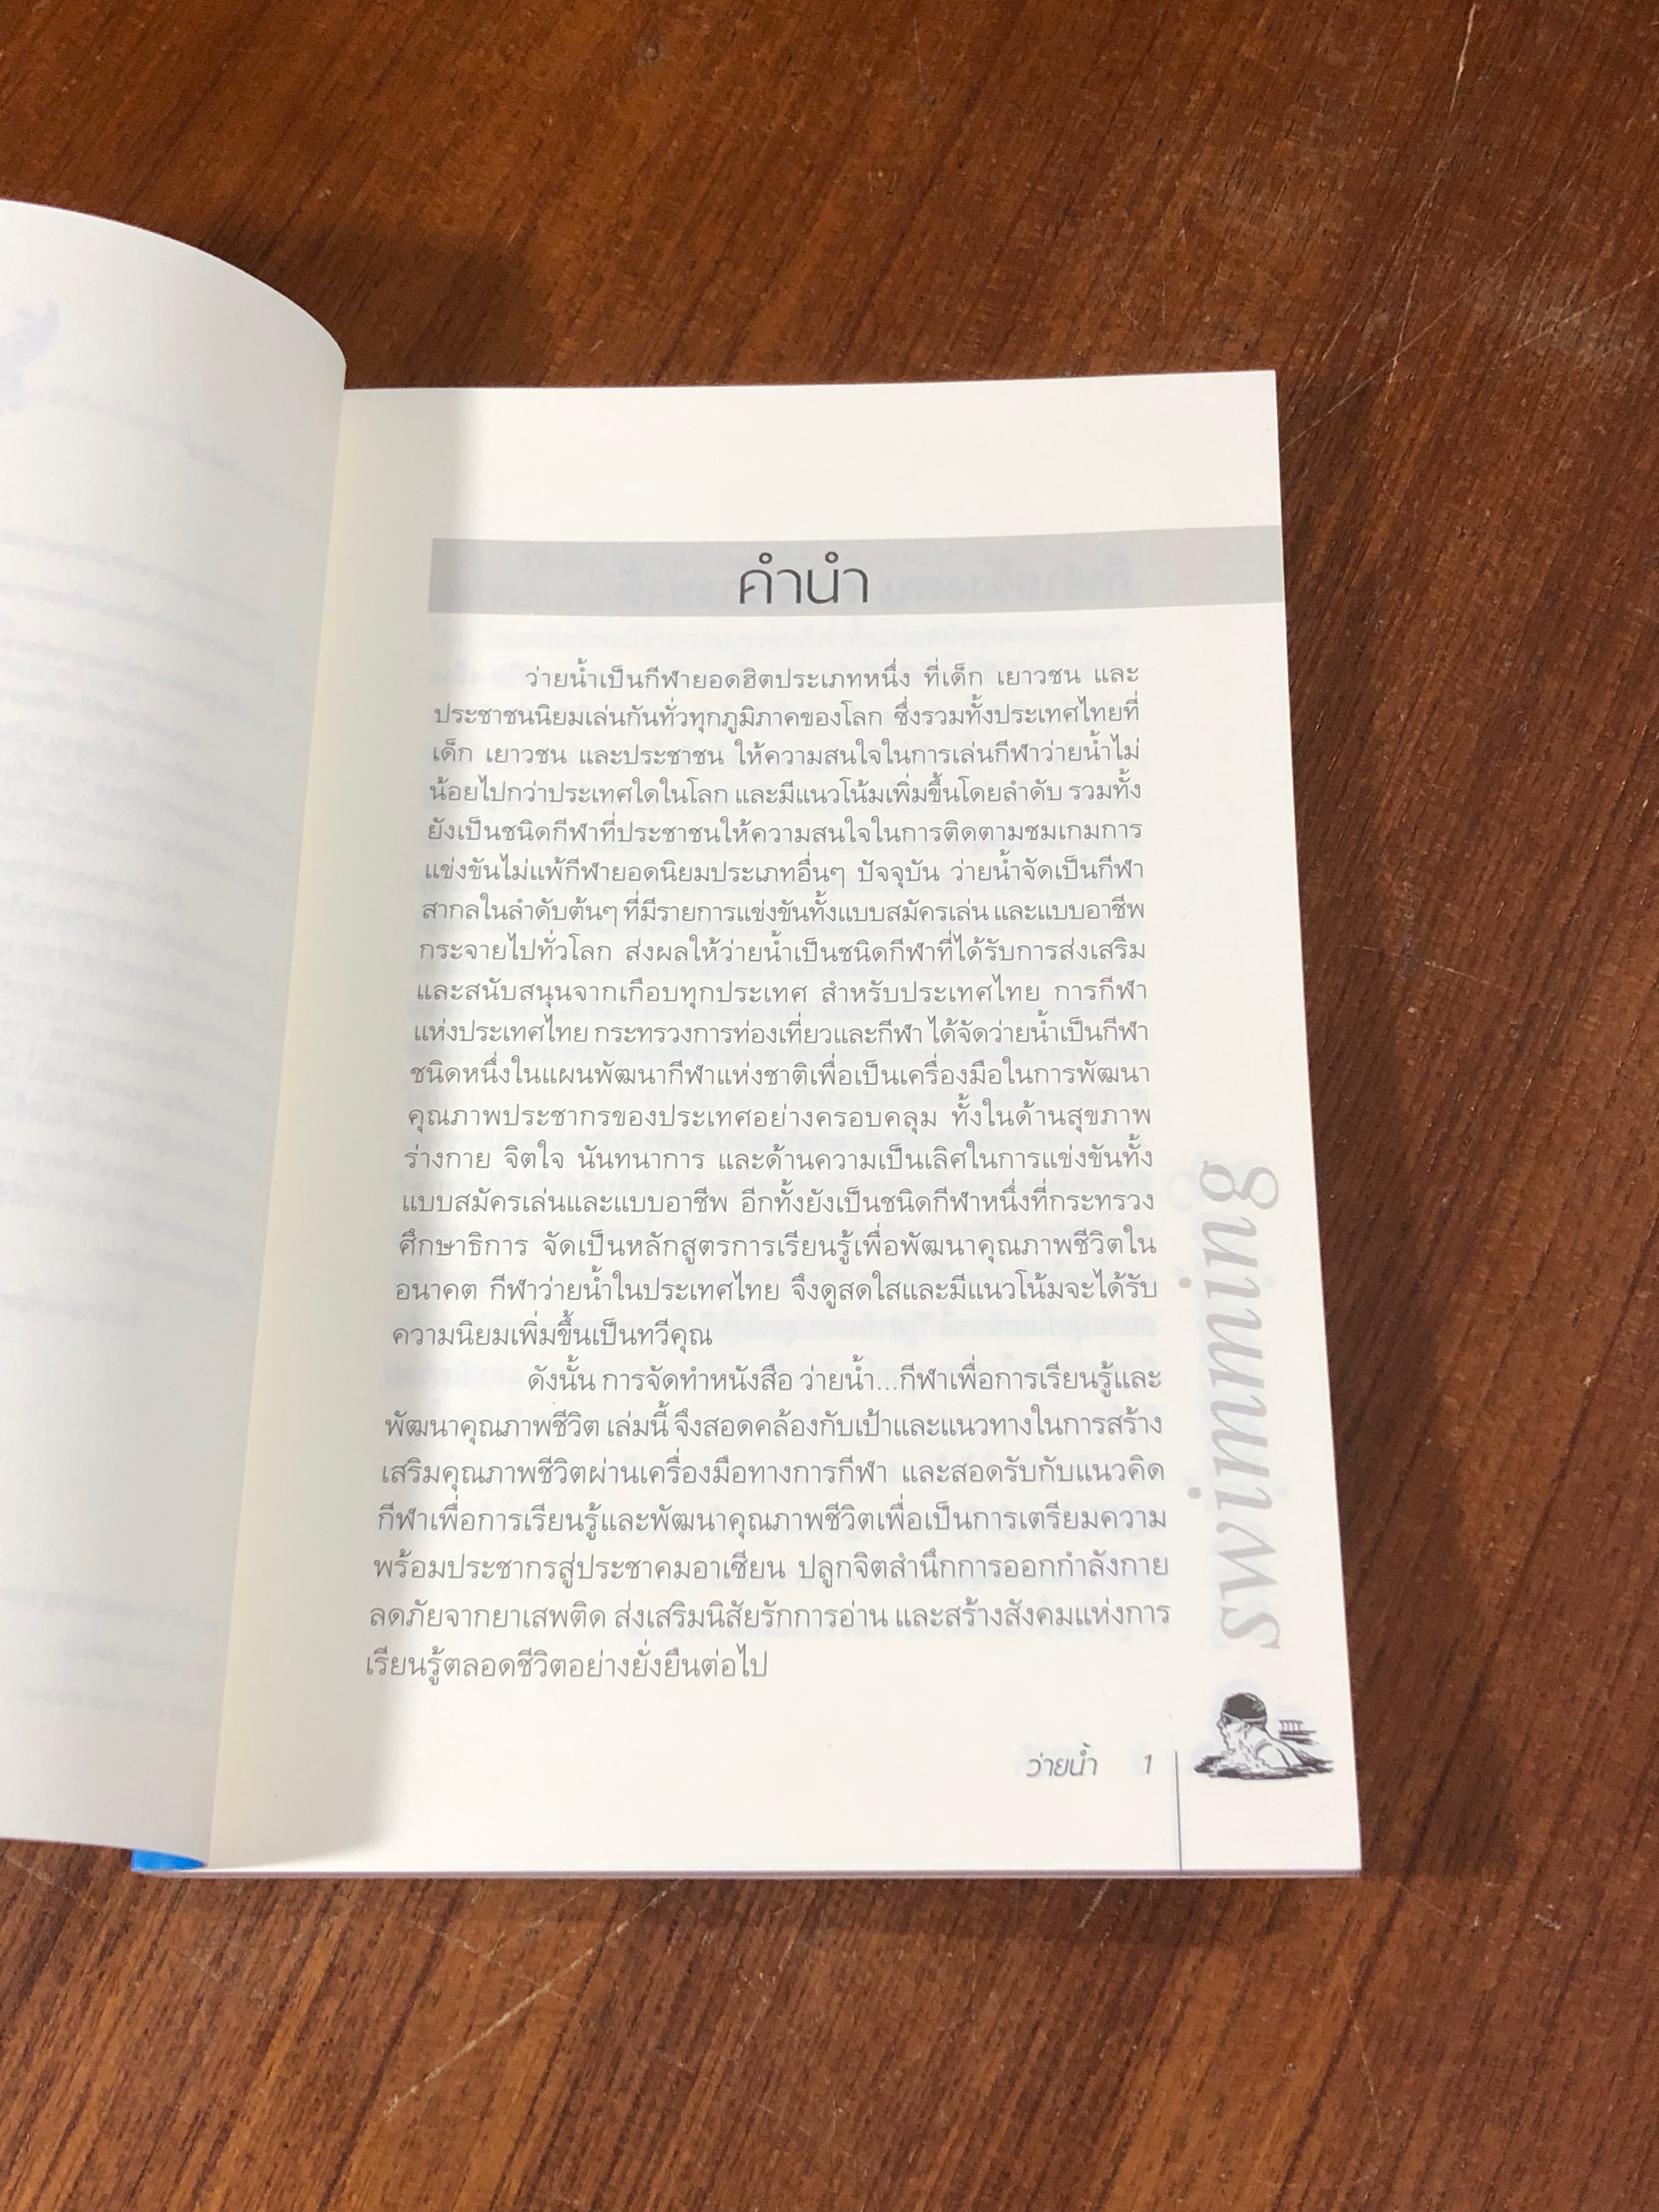 คำนำ
ว่ายน้ำเป็นกีฬายอดฮิตประเภทหนึ่ง ที่เด็ก เยาวชน และ
ประชาชนนิยมเล่นกันทั่วทุกภูมิภาคของโลก ซึ่งรวมทั้งประเทศไทยที่
เด็ก เยาวชน และประชาชน ให้ความสนใจในการเล่นกีฬาว่ายน้ำไม่
น้อยไปกว่าประเทศใดในโลก และมีแนวโน้มเพิ่มขึ้นโดยลำดับ รวมทั้ง
ยังเป็นชนิดกีฬาที่ประชาชนให้ความสนใจในการติดตามชมเกมการ
แข่งขันไม่แพ้กีฬายอดนิยมประเภทอื่นๆ ปัจจุบัน ว่ายน้ำจัดเป็นกีฬา
สากลในลำดับต้นๆ ที่มีรายการแข่งขันทั้งแบบสมัครเล่น และแบบอาชีพ
กระจายไปทั่วโลก ส่งผลให้ว่ายน้ำเป็นชนิดกีฬาที่ได้รับการส่งเสริม
และสนับสนุนจากเกือบทุกประเทศ สำหรับประเทศไทย การกีฬา
แห่งประเทศไทย กระทรวงการท่องเที่ยวและกีฬา ได้จัดว่ายน้ำเป็นกีฬา
ชนิดหนึ่งในแผนพัฒนากีฬาแห่งชาติเพื่อเป็นเครื่องมือในการพัฒนา
คุณภาพประชากรของประเทศอย่างครอบคลุม ทั้งในด้านสุขภาพ
ร่างกาย จิตใจ นันทนาการ และด้านความเป็นเลิศในการแข่งขันทั้ง
แบบสมัครเล่นและแบบอาชีพ อีกทั้งยังเป็นชนิดกีฬาหนึ่งที่กระทรวง
ศึกษาธิการ จัดเป็นหลักสูตรการเรียนรู้เพื่อพัฒนาคุณภาพชีวิตใน
อนาคต กีฬาว่ายน้ำในประเทศไทย จึงดูสดใสและมีแนวโน้มจะได้รับ
ความนิยมเพิ่มขึ้นเป็นทวีคูณ
ดังนั้น การจัดทำหนังสือ ว่ายน้ำ...กีฬาเพื่อการเรียนรู้และ
พัฒนาคุณภาพชีวิต เล่มนี้ จึงสอดคล้องกับเป้าและแนวทางในการสร้าง
เสริมคุณภาพชีวิตผ่านเครื่องมือทางการกีฬา และสอดรับกับแนวคิด
กีฬาเพื่อการเรียนรู้และพัฒนาคุณภาพชีวิตเพื่อเป็นการเตรียมความ
พร้อมประชากรสู่ประชาคมอาเซียน ปลูกจิตสำนึกการออกกำลังกาย
ลดภัยจากยาเสพติด ส่งเสริมนิสัยรักการอ่าน และสร้างสังคมแห่งการ
เรียนรู้ตลอดชีวิตอย่างยั่งยืนต่อไป
swimming
ว่ายน้ำ 1